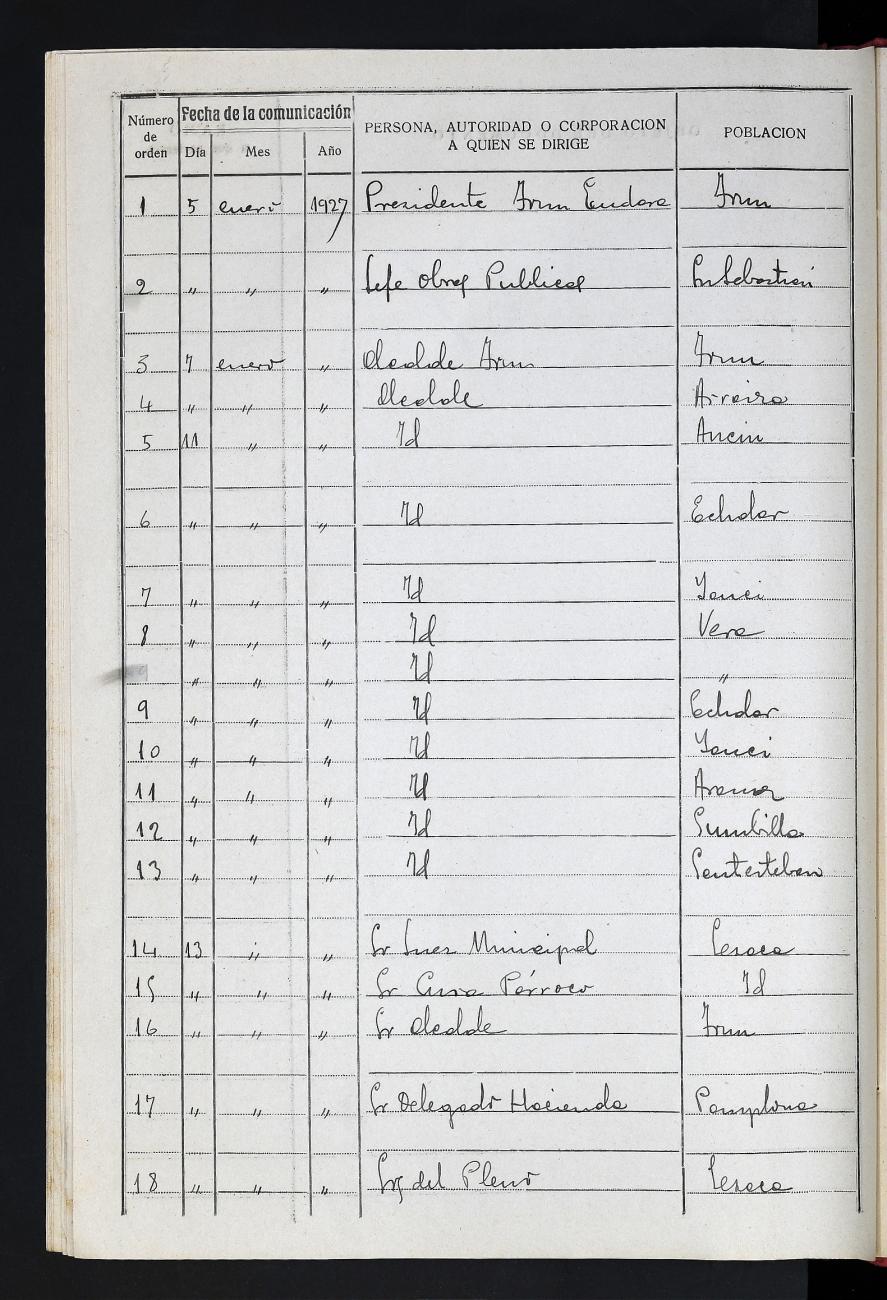 Número de orden Fecha de la comunicación PERSONA, AUTORIDAD O CORPORACION A QUIEN SE DIRIGE POBLACION
Día Mes Año
1 5 enero 1927 Presidente Irun Endara Irun
2 " " " Jefe Obras Publicas Sn Sebastian
3 7 enero " Alcalde Irun Irun
4 " " " Alcalde Arraiza
5 11 " " Id Ancin
6 " " " Id Echalar
7 " " " Id Yanci
8 " " " Id Vera
" " " Id "
9 " " " Id Echalar
10 " " " Id Yanci
11 " " " Id Aranaz
12 " " " Id Sumbilla
13 " " " Id Santesteban
14 13 " " Sr Juez Municipal Lesaca
15 " " " Sr Cura Párroco Id
16 " " " Sr Alcalde Irun
17 " " " Sr Delegado Hacienda Pamplona
18 " " " Srs del Pleno Lesaca